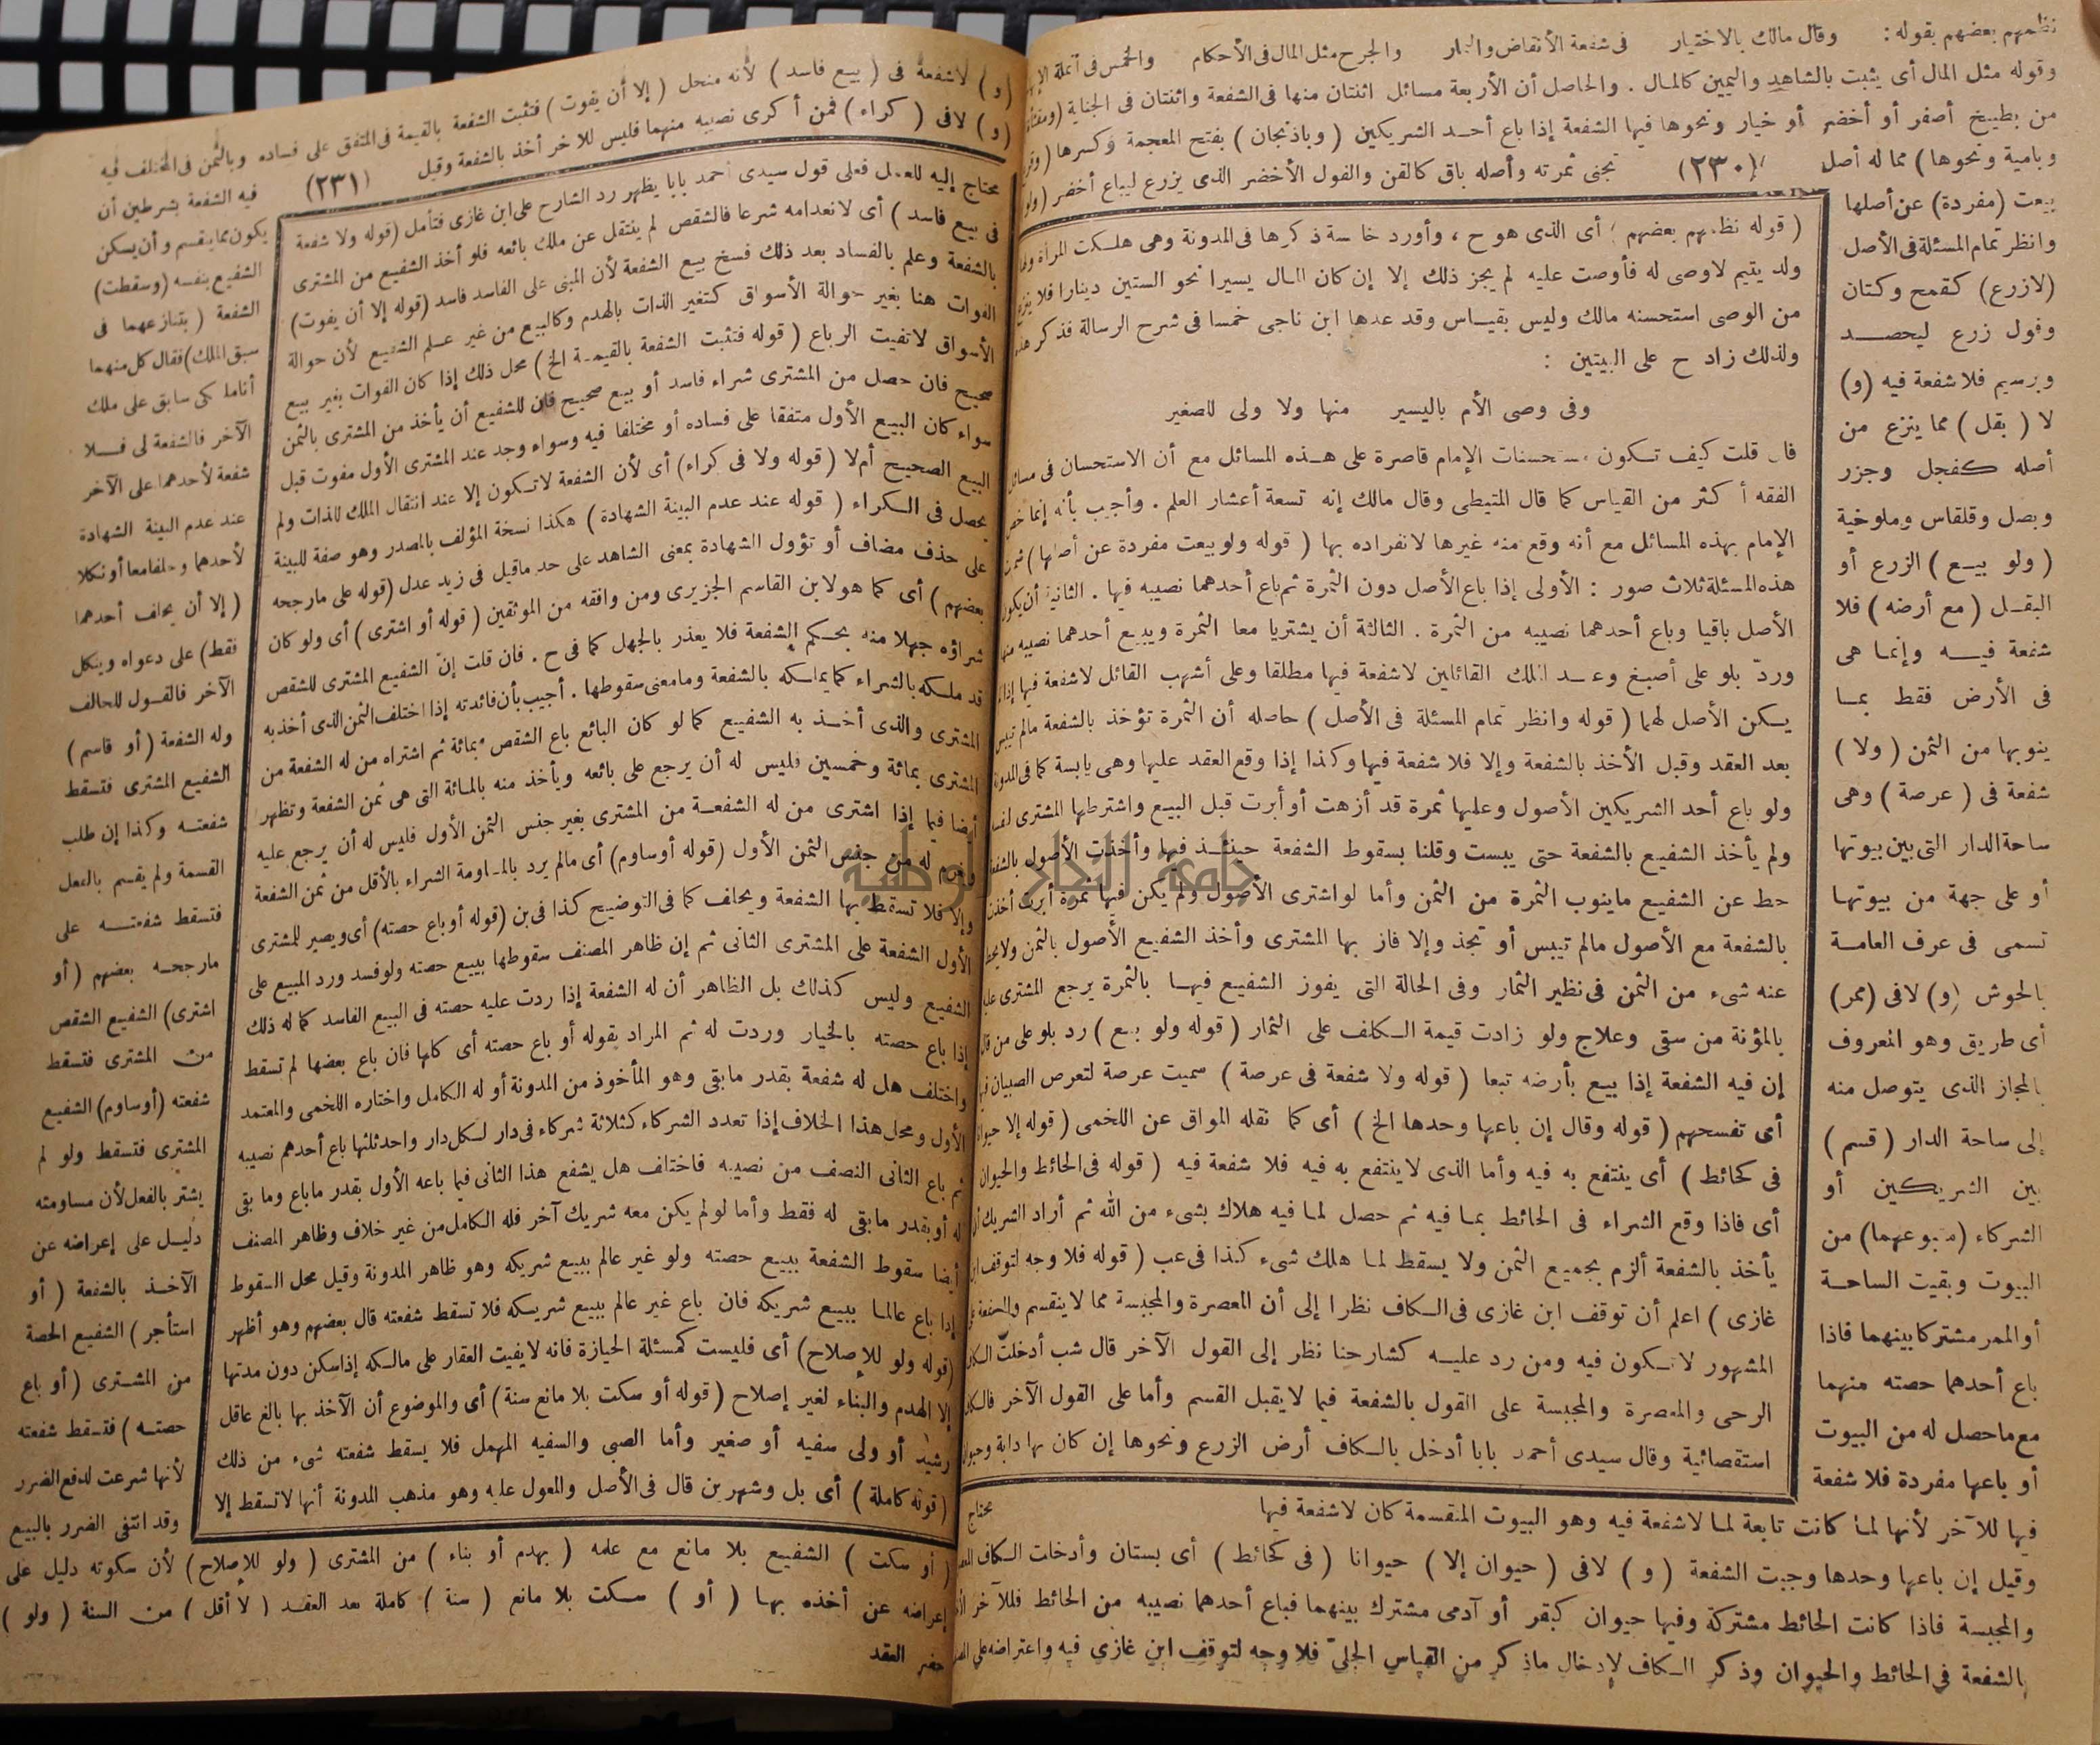 نظمهم بعضهم بقوله : وقال مالك بالاختيار فى شفعة الأنقاض والثمار والجرح مثل المال فى الأحكام والخمس فى أنملة
وقوله مثل المال أى يثبت بالشاهد واليمين كالمال . والحاصل أن الأربعة مسائل اثنتان منها فى الشفعة واثنتان فى الجناية
من بطيخ أصفر أو أخضر أو خيار ونحوها فيها الشفعة إذا باع أحد الشريكين ( وباذنجان ) بفتح المعجمة وكسرها
وبامية ونحوها ) مما له أصل (٢٣٠) تجنى ثمرته وأصله باق كالقن والفول الأخضر الذى يزرع ليباع أخضر
بيعت (مفردة) عن أصلها
وانظر تمام المسئلة فى الأصل
(لازرع) كقمح وكتان
وفول زرع ليحصد
وبرسيم فلا شفعة فيه (و)
لا ( بقل ) مما ينزع من
أصله كفجل وجزر
وبصل وقلقاس وملوخية
( ولو بيع ) الزرع أو
البقل ( مع أرضه ) فلا
شفعة فيه وإنما هى
فى الأرض فقط بما
ينوبها من الثمن ( ولا )
شفعة فى ( عرصة ) وهى
ساحة الدار التى بين بيوتها
أو على جهة من بيوتها
تسمى فى عرف العامة
بالحوش (و) لافى (ممر)
أى طريق وهو المعروف
بالمجاز الذى يتوصل منه
إلى ساحة الدار ( قسم )
بين الشريكين أو
الشركاء (متبوعهما) من
البيوت وبقيت الساحة
أو الممر مشتركا بينهما فاذا
باع أحدهما حصته منهما
مع ماحصل له من البيوت
أو باعها مفردة فلا شفعة
( قوله نظمهم بعضهم ) أى الذى هو ح ، وأورد خامسة ذكرها فى المدونة وهى هلكت المرأة
ولد يتيم لاوصى له فأوصت عليه لم يجز ذلك إلا إن كان المال يسيرا نحو الستين دينارا فلا
من الوصى استحسنه مالك وليس بقياس وقد عدها ابن ناجى خمسا فى شرح الرسالة فذكر هذه
ولذلك زاد ح على البيتين :
وفى وصى الأم باليسير منها ولا ولى للصغير
فان قلت كيف تكون مستحسنات الإمام قاصرة على هذه المسائل مع أن الاستحسان فى مسائل
الفقه أكثر من القياس كما قال المتيطى وقال مالك إنه تسعة أعشار العلم . وأجيب بأنه إنما خص
الإمام بهذه المسائل مع أنه وقع منه غيرها لانفراده بها ( قوله ولو بيعت مفردة عن أصلها )
هذه المسئلة ثلاث صور : الأولى إذا باع الأصل دون الثمرة ثم باع أحدهما نصيبه فيها . الثانية أن يكون
الأصل باقيا وباع أحدهما نصيبه من الثمرة . الثالثة أن يشتريا معا الثمرة ويبيع أحدهما نصيبه منها
وردّ بلو على أصبغ وعبد الملك القائلين لاشفعة فيها مطلقا وعلى أشهب القائل لاشفعة فيها إذا لم
يكن الأصل لهما ( قوله وانظر تمام المسئلة فى الأصل ) حاصله أن الثمرة تؤخذ بالشفعة مالم تيبس
بعد العقد وقبل الأخذ بالشفعة وإلا فلا شفعة فيها وكذا إذا وقع العقد عليها وهى يابسة كما فى المدونة
ولو باع أحد الشريكين الأصول وعليها ثمرة قد أزهت أو أبرت قبل البيع واشترطها المشترى لنفسه
ولم يأخذ الشفيع بالشفعة حتى يبست وقلنا بسقوط الشفعة حينئذ فيها وأخذت الأصول بالشفعة
حط عن الشفيع ماينوب الثمرة من الثمن وأما لو اشترى الأصول ولم يكن فيها ثمرة أبرت أخذت
بالشفعة مع الأصول مالم تيبس أو تجذ وإلا فاز بها المشترى وأخذ الشفيع الأصول بالثمن ولا يحط
عنه شىء من الثمن فى نظير الثمار وفى الحالة التى يفوز الشفيع فيها بالثمرة يرجع المشترى عليه
بالمؤنة من سقى وعلاج ولو زادت قيمة الكلف على الثمار ( قوله ولو بيع ) رد بلو على من قال
إن فيه الشفعة إذا بيع بأرضه تبعا ( قوله ولا شفعة فى عرصة ) سميت عرصة لتعرص الصبيان فيها
أى تفسحهم ( قوله وقال إن باعها وحدها الخ ) أى كما نقله المواق عن اللخمى ( قوله إلا حيوان
فى كحائط ) أى ينتفع به فيه وأما الذى لاينتفع به فيه فلا شفعة فيه ( قوله فى الحائط والحيوان
أى فاذا وقع الشراء فى الحائط بما فيه ثم حصل لما فيه هلاك بشىء من الله ثم أراد الشريك أن
يأخذ بالشفعة ألزم بجميع الثمن ولا يسقط لما هلك شىء كذا فى عب ( قوله فلا وجه لتوقف ابن
غازى ) اعلم أن توقف ابن غازى فى الكاف نظرا إلى أن المعصرة والمجبسة مما لاينقسم والشفعة على
المشهور لاتكون فيه ومن رد عليه كشارحنا نظر إلى القول الآخر قال شب أدخلت الكاف
الرحى والمعصرة والمجبسة على القول بالشفعة فيما لايقبل القسم وأما على القول الآخر فالكاف
استقصائية وقال سيدى أحمد بابا أدخل بالكاف أرض الزرع ونحوها إن كان بها دابة وحيوان
محتاج
فيها للآخر لأنها لما كانت تابعة لما لاشفعة فيه وهو البيوت المنقسمة كان لاشفعة فيها
وقيل إن باعها وحدها وجبت الشفعة ( و ) لافى ( حيوان إلا ) حيوانا ( فى كحائط ) أى بستان وأدخلت الكاف
والمجبسة فاذا كانت الحائط مشتركة وفيها حيوان كبقر أو آدمى مشترك بينهما فباع أحدهما نصيبه من الحائط فللآخر
الشفعة فى الحائط والحيوان وذكر الكاف لإدخال ماذكر من القياس الجلىّ فلا وجه لتوقف ابن غازى فيه واعتراضه على
(و) لاشفعة فى ( بيع فاسد ) لأنه منحل ( إلا أن يفوت ) فتثبت الشفعة بالقيمة فى المتفق على فساده وبالثمن فى المختلف فيه
(و) لافى ( كراء ) فمن أكرى نصيبه منهما فليس للآخر أخذ بالشفعة وقيل (٢٣١) فيه الشفعة بشرطين أن
يكون مما ينقسم وأن يسكن
الشفيع بنفسه (وسقطت)
الشفعة ( بتنازعهما فى
سبق الملك) فقال كل منهما
أنا ملكى سابق على ملك
الآخر فالشفعة لى فلا
شفعة لأحدهما على الآخر
عند عدم البينة الشهادة
لأحدهما وحلفا معا أو نكلا
( إلا أن يحلف أحدهما
فقط) على دعواه وينكل
الآخر فالقول للحالف
وله الشفعة ( أو قاسم )
الشفيع المشترى فتسقط
شفعته وكذا إن طلب
القسمة ولم يقسم بالفعل
فتسقط شفعته على
مارجحه بعضهم ( أو
اشترى) الشفيع الشقص
من المشترى فتسقط
شفعته (أوساوم) الشفيع
المشترى فتسقط ولو لم
يشتر بالفعل لأن مساومته
دليل على إعراضه عن
الآخذ بالشفعة ( أو
استأجر ) الشفيع الحصة
من المشترى ( أو باع
حصته ) فتسقط شفعته
لأنها شرعت لدفع الضرر
وقد انتفى الضرر بالبيع
محتاج إليه للعمل فعلى قول سيدى أحمد بابا يظهر رد الشارح على ابن غازى فتأمل (قوله ولا شفعة
فى بيع فاسد ) أى لانعدامه شرعا فالشقص لم ينتقل عن ملك بائعه فلو أخذ الشفيع من المشترى
بالشفعة وعلم بالفساد بعد ذلك فسخ بيع الشفعة لأن المبنى على الفاسد فاسد (قوله إلا أن يفوت)
الفوات هنا بغير حوالة الأسواق كتغير الذات بالهدم وكالبيع من غير علم الشفيع لأن حوالة
الأسواق لاتفيت الرباع ( قوله فتثبت الشفعة بالقيمة الخ ) محل ذلك إذا كان الفوات بغير بيع
صحيح فان حصل من المشترى شراء فاسد أو بيع صحيح فان للشفيع أن يأخذ من المشترى بالثمن
سواء كان البيع الأول متفقا على فساده أو مختلفا فيه وسواء وجد عند المشترى الأول مفوت قبل
البيع الصحيح أم لا ( قوله ولا فى كراء) أى لأن الشفعة لاتكون إلا عند انتقال الملك للذات ولم
يحصل فى الكراء ( قوله عند عدم البينة الشهادة ) هكذا نسخة المؤلف بالمصدر وهو صفة للبينة
على حذف مضاف أو تؤول الشهادة بمعنى الشاهد على حد ماقيل فى زيد عدل (قوله على مارجحه
بعضهم ) أى كما هو لابن القاسم الجزيرى ومن وافقه من الموثقين ( قوله أو اشترى ) أى ولو كان
شراؤه جهلا منه بحكم الشفعة فلا يعذر بالجهل كما فى ح . فان قلت إنّ الشفيع المشترى للشقص
قد ملكه بالشراء كما يملكه بالشفعة وما معنى سقوطها . أجيب بأن فائدته إذا اختلف الثمن الذى أخذ به
المشترى والذى أخذ به الشفيع كما لو كان البائع باع الشقص بمائة ثم اشتراه من له الشفعة من
المشترى بمائة وخمسين فليس له أن يرجع على بائعه ويأخذ منه بالمائة التى هى ثمن الشفعة وتظهر
أيضا فيما إذا اشترى من له الشفعة من المشترى بغير جنس الثمن الأول فليس له أن يرجع عليه
ويغرم له من جنس الثمن الأول (قوله أوساوم) أى مالم يرد بالمساومة الشراء بالأقل من ثمن الشفعة
وإلا فلا تسقط بها الشفعة ويحلف كما فى التوضيح كذا فى بن (قوله أو باع حصته) أى ويصير للمشترى
الأول الشفعة على المشترى الثانى ثم إن ظاهر المصنف سقوطها ببيع حصته ولو فسد ورد المبيع على
الشفيع وليس كذلك بل الظاهر أن له الشفعة إذا ردت عليه حصته فى البيع الفاسد كما له ذلك
إذا باع حصته بالخيار وردت له ثم المراد بقوله أو باع حصته أى كلها فان باع بعضها لم تسقط
واختلف هل له شفعة بقدر مابقى وهو المأخوذ من المدونة أو له الكامل واختاره اللخمى والمعتمد
الأول ومحل هذا الخلاف إذا تعدد الشركاء كثلاثة شركاء فى دار لكل دار واحد ثلثها باع أحدهم نصيبه
ثم باع الثانى النصف من نصيبه فاختلف هل يشفع هذا الثانى فيما باعه الأول بقدر ماباع وما بقى
له أو بقدر مابقى له فقط وأما لو لم يكن معه شريك آخر فله الكامل من غير خلاف وظاهر المصنف
أيضا سقوط الشفعة ببيع حصته ولو غير عالم ببيع شريكه وهو ظاهر المدونة وقيل محل السقوط
إذا باع عالما ببيع شريكه فان باع غير عالم ببيع شريكه فلا تسقط شفعته قال بعضهم وهو أظهر
(قوله ولو للإصلاح) أى فليست كمسئلة الحيازة فانه لايفيت العقار على مالكه إذا سكن دون مدتها
إلا الهدم والبناء لغير إصلاح ( قوله أو سكت بلا مانع سنة ) أى والموضوع أن الآخذ بها بالغ عاقل
رشيد أو ولى سفيه أو صغير وأما الصبى والسفيه المهمل فلا يسقط شفعته شىء من ذلك
(قوله كاملة ) أى بل وشهرين قال فى الأصل والمعول عليه وهو مذهب المدونة أنها لاتسقط إلا
( أو سكت ) الشفيع بلا مانع مع علمه ( بهدم أو بناء ) من المشترى ( ولو للإصلاح ) لأن سكوته دليل على
إعراضه عن أخذه بها ( أو ) سكت بلا مانع ( سنة ) كاملة بعد العقد ( لا أقل ) من السنة ( ولو )
حضر العقد
جامعة النجاح الوطنية